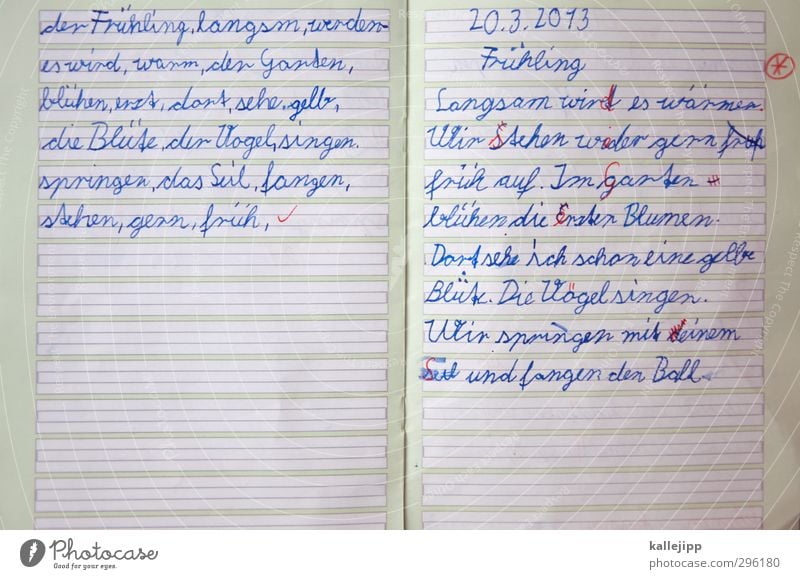 der Frühling, langsam, werden
es wird, warm, der Garten,
blühen, erzt, dort, sehe, gelb,
die Blüte, der Vogel, singen.
springen, das Seil, fangen,
stehen, gern, früh,
20.3.2013
Frühling
Langsam wird es wärmer.
Wir Stehen wider gern
früh auf. Im Garten
blühen die Ersten Blumen.
Dort sehe ich schon eine gelbe
Blüte. Die Vögel singen.
Wir springen mit einem
Seil und fangen den Ball.
Photocase
Good for your eyes.
kallejipp
photocase.com/296180